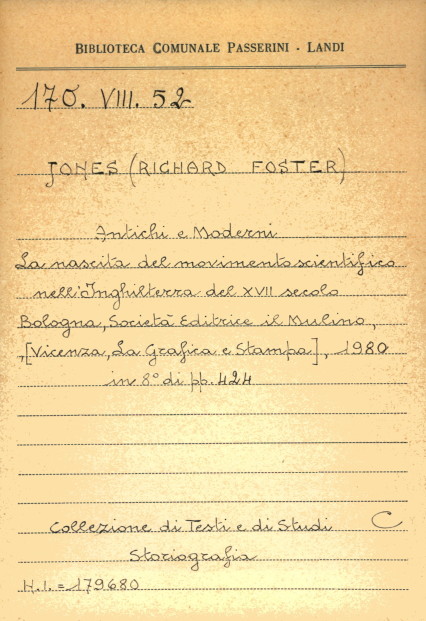 BIBLIOTECA COMUNALE PASSERINI - LANDI
170. VIII. 52
JONES (RICHARD FOSTER)
Antichi e Moderni
La nascita del movimento scientifico
nell'Inghilterra del XVII secolo
Bologna, Società Editrice il Mulino,
,[Vicenza, La Grafica e Stampa], 1980
in 8° di pp. 424
Collezione di Testi e di Studi C
Storiografia
N.I. = 179680